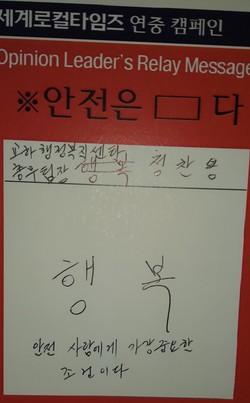 세계로컬타임즈 연중 캠페인
Opinion Leader's Relay Message
※안전은 □ 다
교하행정복지센터
총무팀장 행 복 정 찬 용
행 복
안전 사람에게 가장 중요한
조건이다